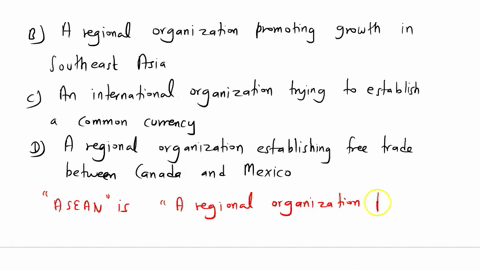 B) A regional organization promoting growth in
Southeast Asia
C) An international organization trying to establish
a common currency
D) A regional organization establishing free trade
between Canada and Mexico
"ASEAN" is "A regional organization